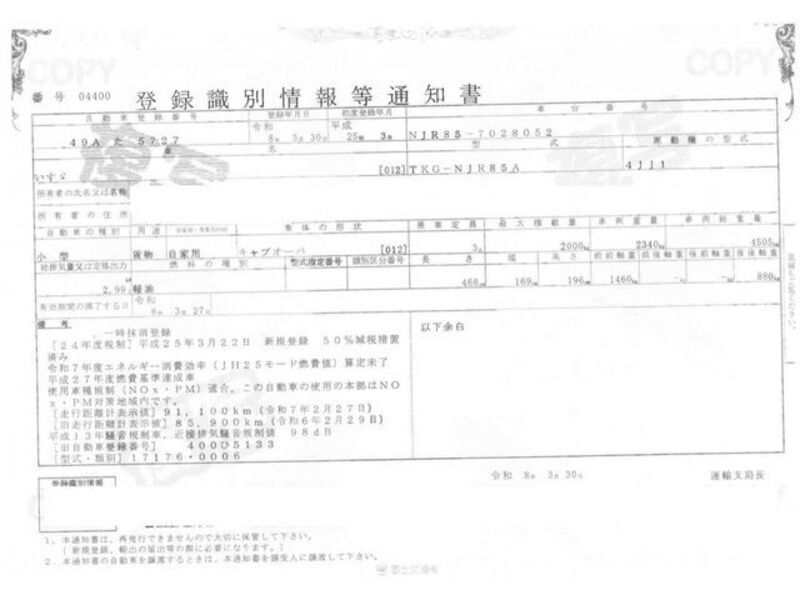 COPY
COPY
番号 04400
登録識別情報等通知書
自動車登録番号 登録年月日 初度登録年月 車台番号
49A た 5727 令和 8年 3月 30日 平成 25年 3月 NJR85-7028052
車名 型式 原動機の型式
いすゞ [012] TKG-NJR85A 4JJ1
所有者の氏名又は名称
所有者の住所
自動車の種別 用途 自家用・事業用の別 車体の形状 乗車定員 最大積載量 車両重量 車両総重量
小型 貨物 自家用 キャブオーバ [012] 3人 2000kg 2340kg 4505kg
総排気量又は定格出力 燃料の種別 型式指定番号 類別区分番号 長さ 幅 高さ 前前軸重 前後軸重 後前軸重 後後軸重
2.99 軽油 468cm 169cm 196cm 1460kg -kg -kg 880kg
有効期間の満了する日 令和 8年 3月 27日
備考
一時抹消登録
[24年度税制] 平成25年3月22日 新規登録 50%減税措置
済み
令和7年度エネルギー消費効率(JH25モード燃費値)算定未了
平成27年度燃費基準達成車
使用車種規制(NOx・PM)適合、この自動車の使用の本拠はNO
x・PM対策地域内です。
[走行距離計表示値] 91,100km (令和7年2月27日)
[旧走行距離計表示値] 85,900km (令和6年2月29日)
平成13年騒音規制車、近接排気騒音規制値 98dB
[旧自動車登録番号] 400ひ5133
[型式・類別] 17176・0006
以下余白
令和 8年 3月 30日 運輸支局長
登録識別情報
1、本通知書は、再発行できませんので大切に保管して下さい。
(新規登録、輸出の届出等の際に必要になります。)
2、本通知書の自動車を譲渡するときは、本通知書を譲受人に譲渡して下さい。
国土交通省